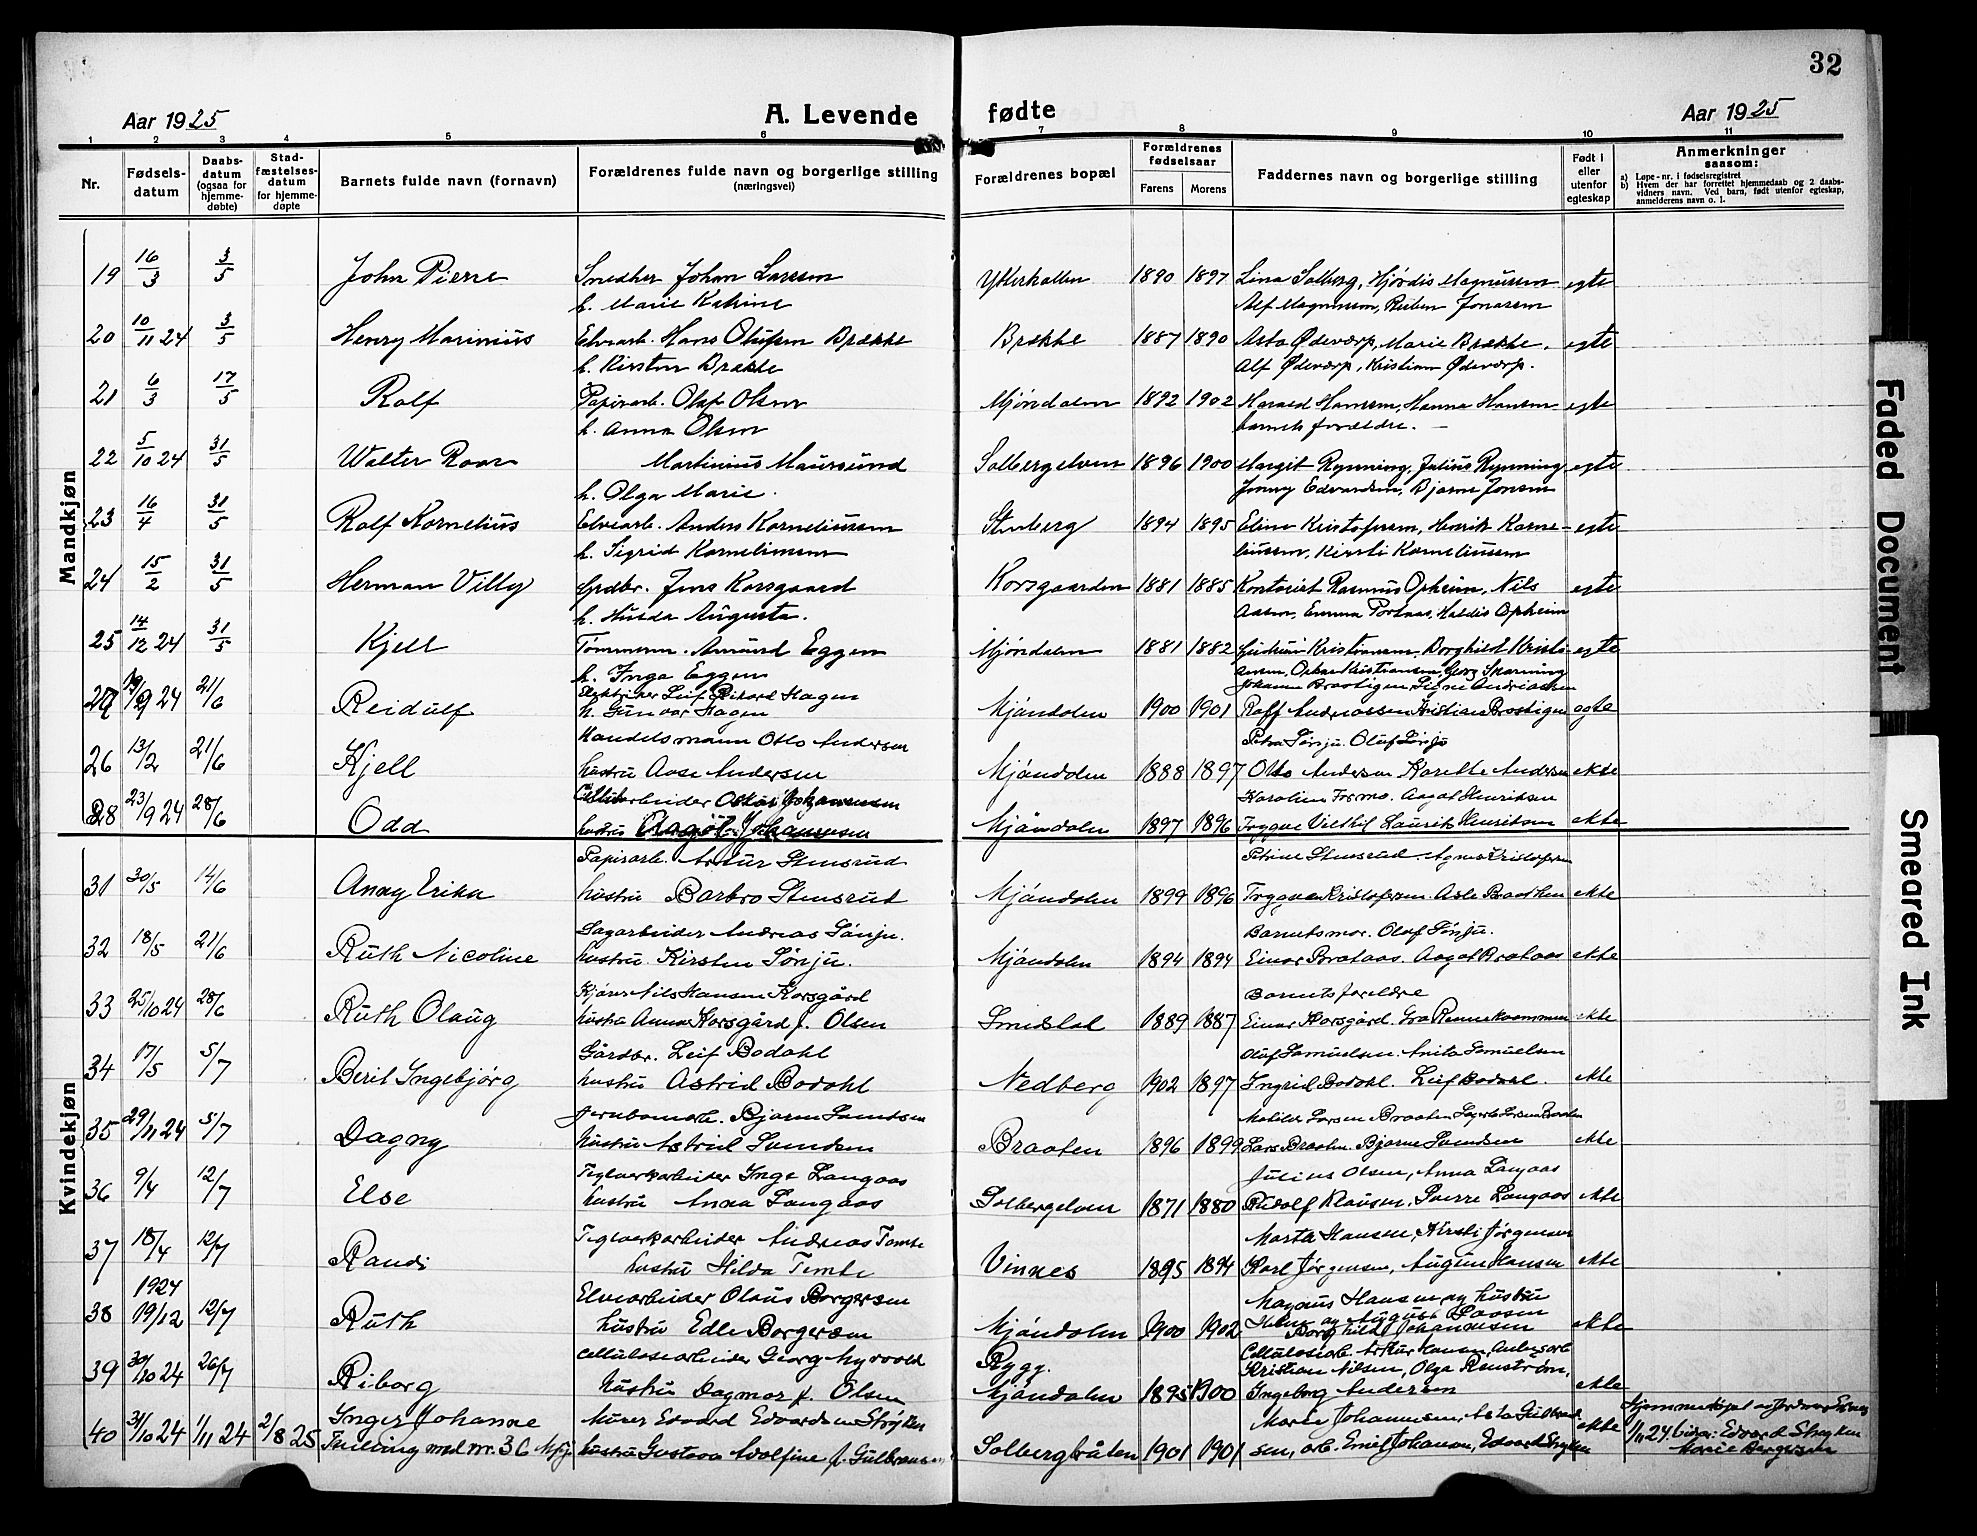 32
Aar 1925
A. Levende
fødte
Aar 1925
1 2 3 4 5 6 7 8 9 10 11
Nr.
Fødsels-
datum
Daabs-
datum
(ogsaa for
hjemme-
døbte)
Stad-
fæstelses-
datum
for hjemme-
døpte
Barnets fulde navn (fornavn)
Forældrenes fulde navn og borgerlige stilling
(næringsvei)
Forældrenes bopæl
Forældrenes
fødselsaar
Farens Morens
Faddernes navn og borgerlige stilling
Født i
eller
utenfor
egteskap
Anmerkninger
saasom:
a) Løpe-nr. i fødselsregistret
b) Hvem der har forrettet hjemmedaab og 2 daabs-
vidners navn. Ved barn, født utenfor egteskap,
anmelderens navn o. l.
Mandkjøn
19 16/3 3/5 John Pierre Smedher Johan Larssen Ytterkollen 1890 1897 Lina Solberg, Hjørdis Magnussen egte
h. Marie Katrine Alf Magnussen, Reiben Jonassen
20 10/11 24 3/5 Henry Marinius Elvearb. Hans Olufsen Brække Brække 1887 1890 Asta Ødevorp, Marie Brække. egte
h. Kirsten Brække Alf Ødevorp, Kristian Ødevorp.
21 6/3 17/5 Rolf Papirarb. Olaf Olsen Mjøndalen 1892 1902 Harald Hansen, Hanna Hansen egte
h. Anna Olsen barnets forældre. —
22 5/10 24 31/5 Walter Roar Martinius Maursund Solbergelven 1896 1900 Margit Rynning, Julius Rynning egte
h. Olga Marie. Jonny Edvardsen, Bjarne Jonsen
23 16/4 31/5 Rolf Kornelius Elvearb. Anders Korneliussen Stenberg 1894 1895 Eline Kristofersen, Henrik Korne- egte
h. Sigrid Korneliussen liussen, Kirsti Korneliussen
24 15/2 31/5 Herman Villy Grdbr. Jens Korsgaard Korsgaarden 1881 1885 Kontorist Rasmus Opheim, Nils egte
h. Hulda Augusta. Aasen, Emma Portaas, Haldis Opheim
25 14/12 24 31/5 Kjell Tømmerm. Amund Eggen Mjøndalen 1881 1882 Gudrun Kristiansen Borghild Kristi- egte
h. Inga Eggen ansen, Oskar Kristiansen, Georg Sparning
27 9/9 24 21/6 Reidulf Elektriker Leif Rikard Hagen Mjøndalen 1900 1901 Johanne Braatigen, Signe Andreassen
h. Gunvor Hagen Rolf Andreassen Kristian Braatigen egte
26 13/2 21/6 Kjell Handelsmann Otto Andersen Mjøndalen 1888 1897 Petra Sønju. Oluf Sønju
hustru Aase Andersen Otto Andersen Karethe Andersen ekte
28 23/9 24 28/6 Odd Cellularbeider Oskar Johannessen Mjøndalen 1897 1896 Karoline Formo. Aagot Henriksen
hustru Aagot Johannessen Trygve Vilthil Laurits Henriksen ekte
Kvindekjøn
31 30/5 14/6 Anny Erika Papirarb. Artur Stensrud Petrine Stensrud. Agnes Kristofersen
hustru Barbro Stensrud Mjøndalen 1899 1896 Trygve Kristofersen. Asle Braathen ekte
32 18/5 21/6 Ruth Nicoline Sagarbeider Andreas Sønju. Barnets mor. Olaf Sønju.
hustru Kirsten Sønju. Mjøndalen 1894 1894 Einar Portaas. Aagot Portaas ekte
33 25/10 24 28/6 Ruth Olaug Kjører Nils Hansen Korsgård Barnets foreldre
hustru Anna Korsgård f. Olsen Smedstad 1889 1887 Einar Korsgård. Gro Rennekvammen ekte
34 17/5 5/7 Berit Ingebjørg Gårdbr. Leif Bodahl Oluf Samuelsen. Anita Samuelsen
hustru Astrid Bodahl Nedberg 1902 1897 Ingrid Bodahl. Leif Bodahl. ekte
35 29/11 24 5/7 Dagny Jernbanearb. Bjarne Svendsen Matilde Larsen Braaten Sigurd Larsen Braaten
hustru Astrid Svendsen Braaten 1896 1899 Lars Braaten. Bjarne Svendsen ekte
36 9/4 12/7 Else Teglverkarbeider Inge Langaas Julius Olsen, Anna Langaas
hustru Anna Langaas Solbergelven 1871 1880 Rudolf Klausen, Sverre Langaas ekte
37 18/4 12/7 Randi Teglverkarbeider Andreas Temte Marta Hansen, Kirsti Jørgensen
hustru Hilda Temte Vinnes 1895 1894 Karl Jørgensen, August Hansen ekte
1924
38 19/12 12/7 Ruth Elvearbeider Olaus Borgersen Magnus Hansen og hustru
hustru Edle Borgersen Mjøndalen 1900 1902 Borghild Johannesen ekte
39 30/10 24 26/7 Riborg Cellulosearbeider Georg Myrvold Rygg. Cellulosearb. Artur Hansen, Anlegsarb
Kristian Nilsen, Olga Renström,
hustru Dagmar f. Olsen Mjøndalen 1895 1900 Ingeborg Andersen ekte
40 31/10 24 1/11 24 2/8 25 Inger Johanne Murer Edvard Edvardsen Stryken Marie Johannesen, Asta Gulbrand- ekte Hjemmedøpt av Jordmor
Tvilling med nr. 30 hustru Gustava Adolfine f. Gulbransen Solbergbråten 1901 1901 sen, arb. Emil Johansen, Edvard Stryken 1/11 24. Vidner: Edvard Stryken
Marie Bergersen
Faded Document
Smeared Ink